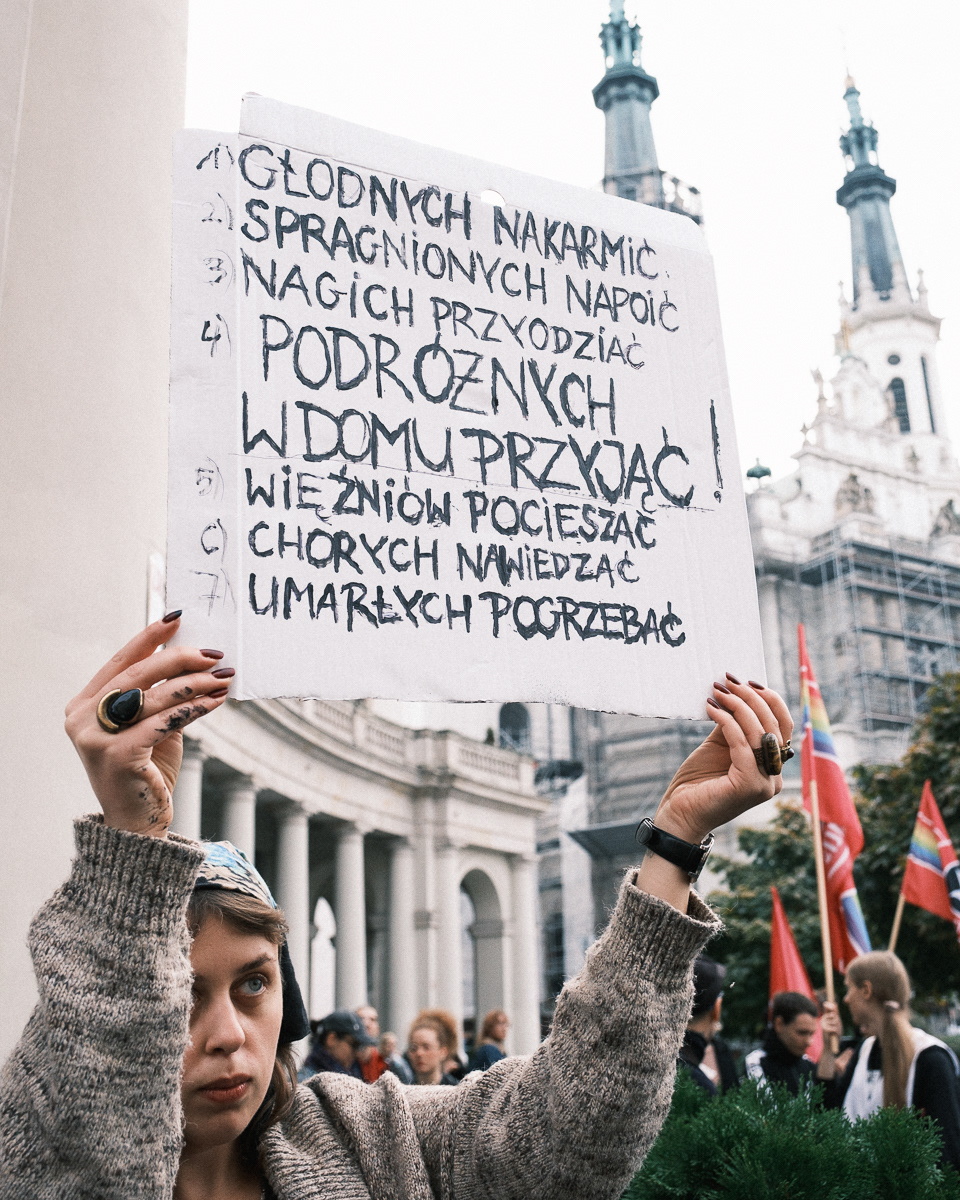 1) GŁODNYCH NAKARMIĆ.
2) SPRAGNIONYCH NAPOIĆ
3) NAGICH PRZYODZIAĆ
4) PODRÓŻNYCH
W DOMU PRZYJĄĆ!
5) WIĘŹNIÓW POCIESZAĆ
6) CHORYCH NAWIEDZAĆ
7) UMARŁYCH POGRZEBAĆ